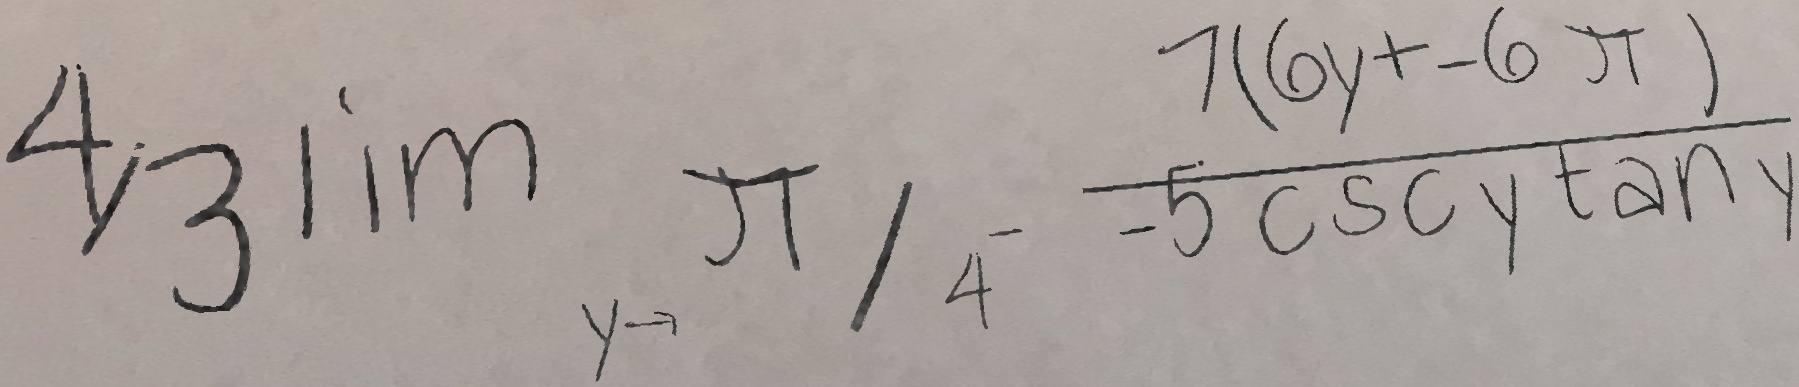 4/3 lim y→π/4⁻ 7(6y+-6π)/-5cscytany